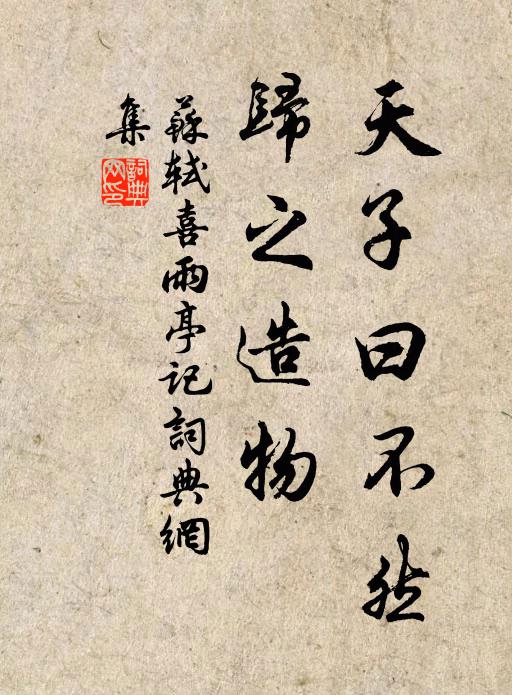 天子曰不然
歸之造物
蘇軾喜雨亭記詞典網
集
詞典網印